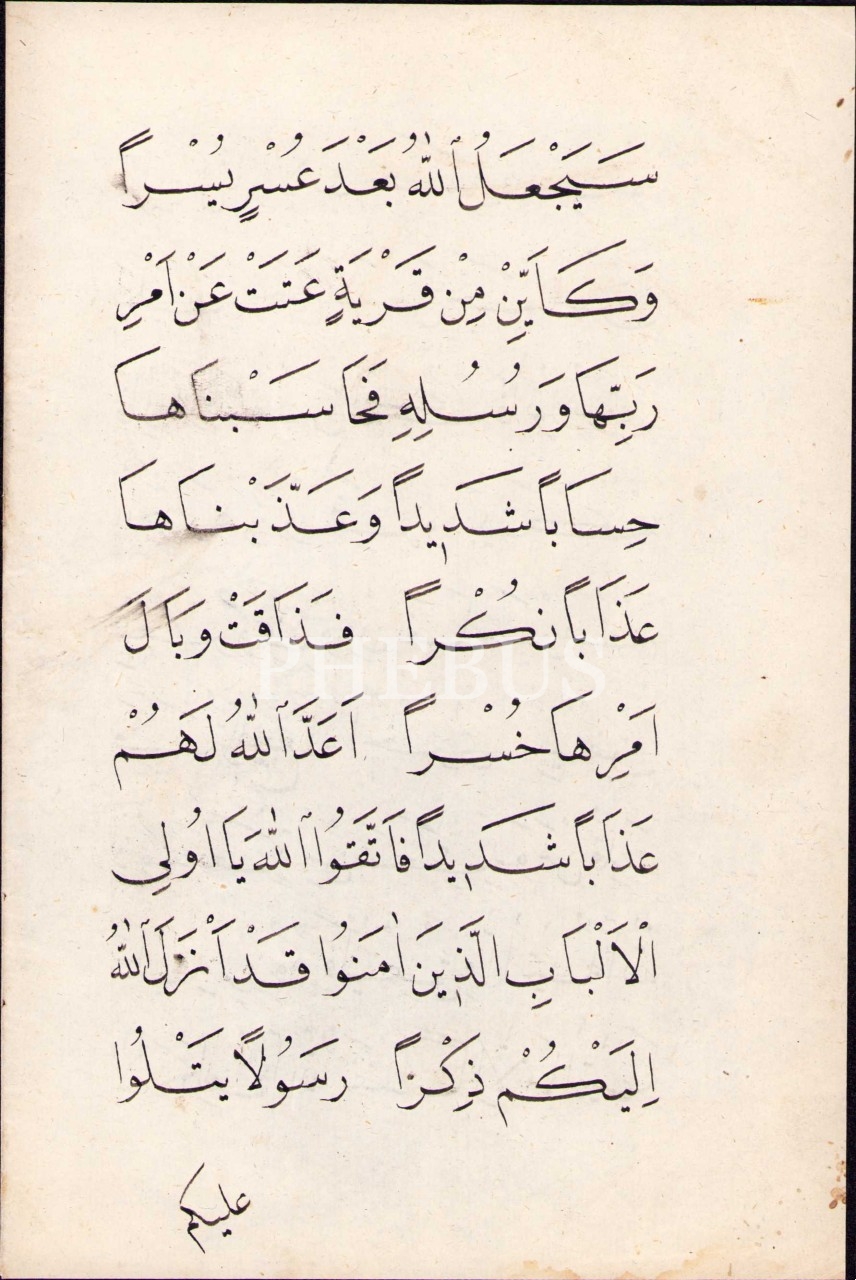 سَيَجْعَلُ ٱللّٰهُ بَعْدَ عُسْرٍ يُسْراً
وَكَاَيِّنْ مِنْ قَرْيَةٍ عَتَتْ عَنْ اَمْرِ
رَبِّهَا وَرُسُلِهِ فَحَاسَبْنَاهَا
حِسَاباً شَدٖيداً وَعَذَّبْنَاهَا
عَذَاباً نُكْراً فَذَاقَتْ وَبَالَ
اَمْرِهَا خُسْراً اَعَدَّ ٱللّٰهُ لَهُمْ
عَذَاباً شَدٖيداً فَاتَّقُوا ٱللّٰهَ يَا اُولِي
الْاَلْبَابِ الَّذٖينَ اٰمَنُوا قَدْ اَنْزَلَ ٱللّٰهُ
اِلَيْكُمْ ذِكْراً رَسُولاً يَتْلُوا
PHEBUS
عليكم